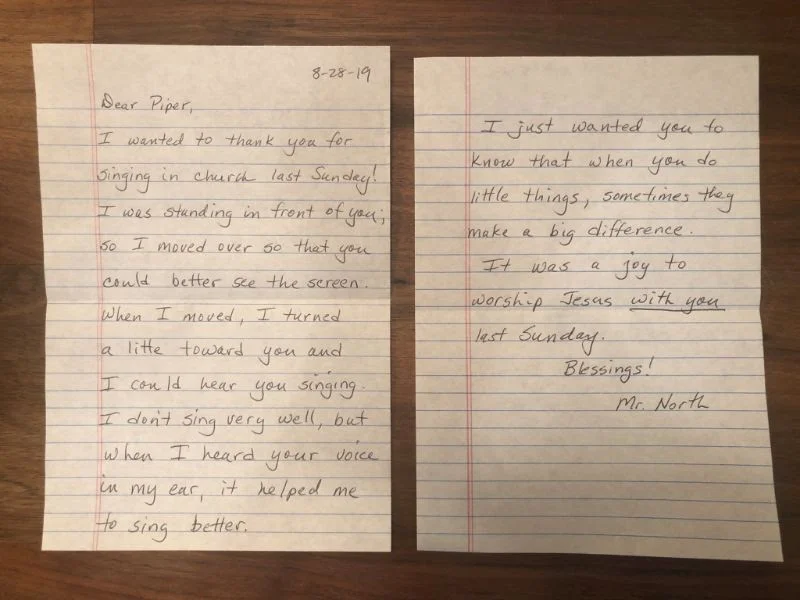 8-28-19
Dear Piper,
I wanted to thank you for
singing in church last Sunday!
I was standing in front of you;
so I moved over so that you
could better see the screen.
When I moved, I turned
a litte toward you and
I could hear you singing.
I don't sing very well, but
when I heard your voice
in my ear, it helped me
to sing better.
I just wanted you to
know that when you do
little things, sometimes they
make a big difference.
It was a joy to
worship Jesus with you
last Sunday.
Blessings!
Mr. North